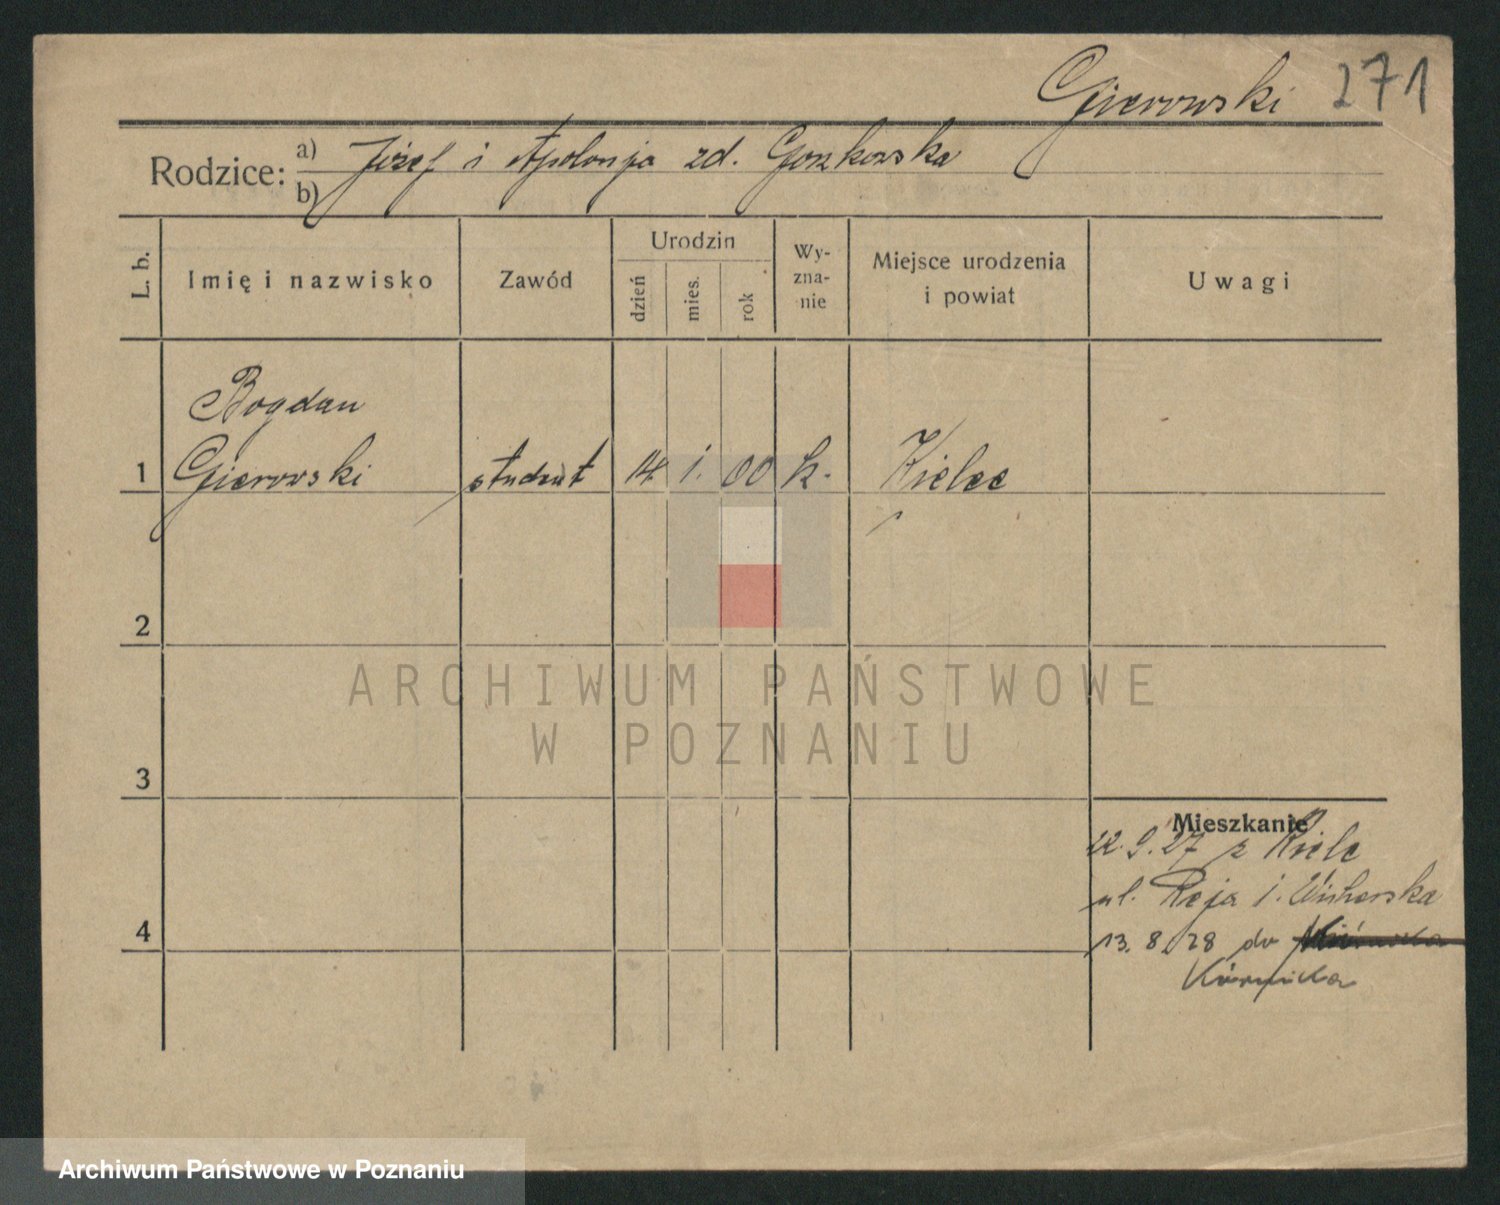 Gierowski 271
Rodzice: a) Józef i Apolonja zd. Gozkowska
b)
L. b.
Imię i nazwisko
Zawód
Urodzin
dzień
mies.
rok
Wy-
zna-
nie
Miejsce urodzenia
i powiat
Uwagi
Bogdan
1 Gierowski student 14. 1. 00 k. Kielce
2
3
4
Mieszkanie
22.9.27 z Kielc
ul. Reja 1.
13.8.28 do
Kórnika
ARCHIWUM PAŃSTWOWE
W POZNANIU
Archiwum Państwowe w Poznaniu